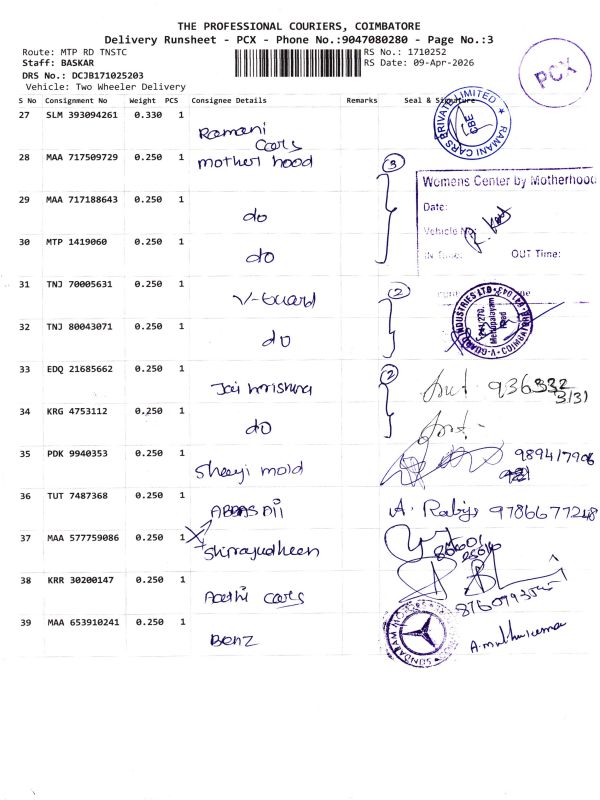 THE PROFESSIONAL COURIERS, COIMBATORE
Delivery Runsheet - PCX - Phone No.:9047080280 - Page No.:3
Route: MTP RD TNSTC
RS No.: 1710252
Staff: BASKAR
RS Date: 09-Apr-2026
DRS No.: DCJB171025203
Vehicle: Two Wheeler Delivery
PCX
S No Consignment No Weight PCS Consignee Details Remarks Seal & Signature
27 SLM 393094261 0.330 1
Ramani
Cars
RAMANI CARS PRIVATE LIMITED
CBE
28 MAA 717509729 0.250 1
mother hood
3
Womens Center by Motherhood
Date:
Vehicle No:
In Time: OUT Time:
29 MAA 717188643 0.250 1
do
30 MTP 1419060 0.250 1
do
31 TNJ 70005631 0.250 1
V-Guard
2
V-GUARD INDUSTRIES LTD
Mettupalayam
Road
COIMBATORE
32 TNJ 80043071 0.250 1
do
33 EDQ 21685662 0.250 1
Jai krishna
2
34 KRG 4753112 0.250 1
do
35 PDK 9940353 0.250 1
mold
989417906
36 TUT 7487368 0.250 1
A. 9786677248
37 MAA 577759086 0.250 1
38 KRR 30200147 0.250 1
cars
39 MAA 653910241 0.250 1
Benz
SUNDARAM MOTORS
A. muthukumar